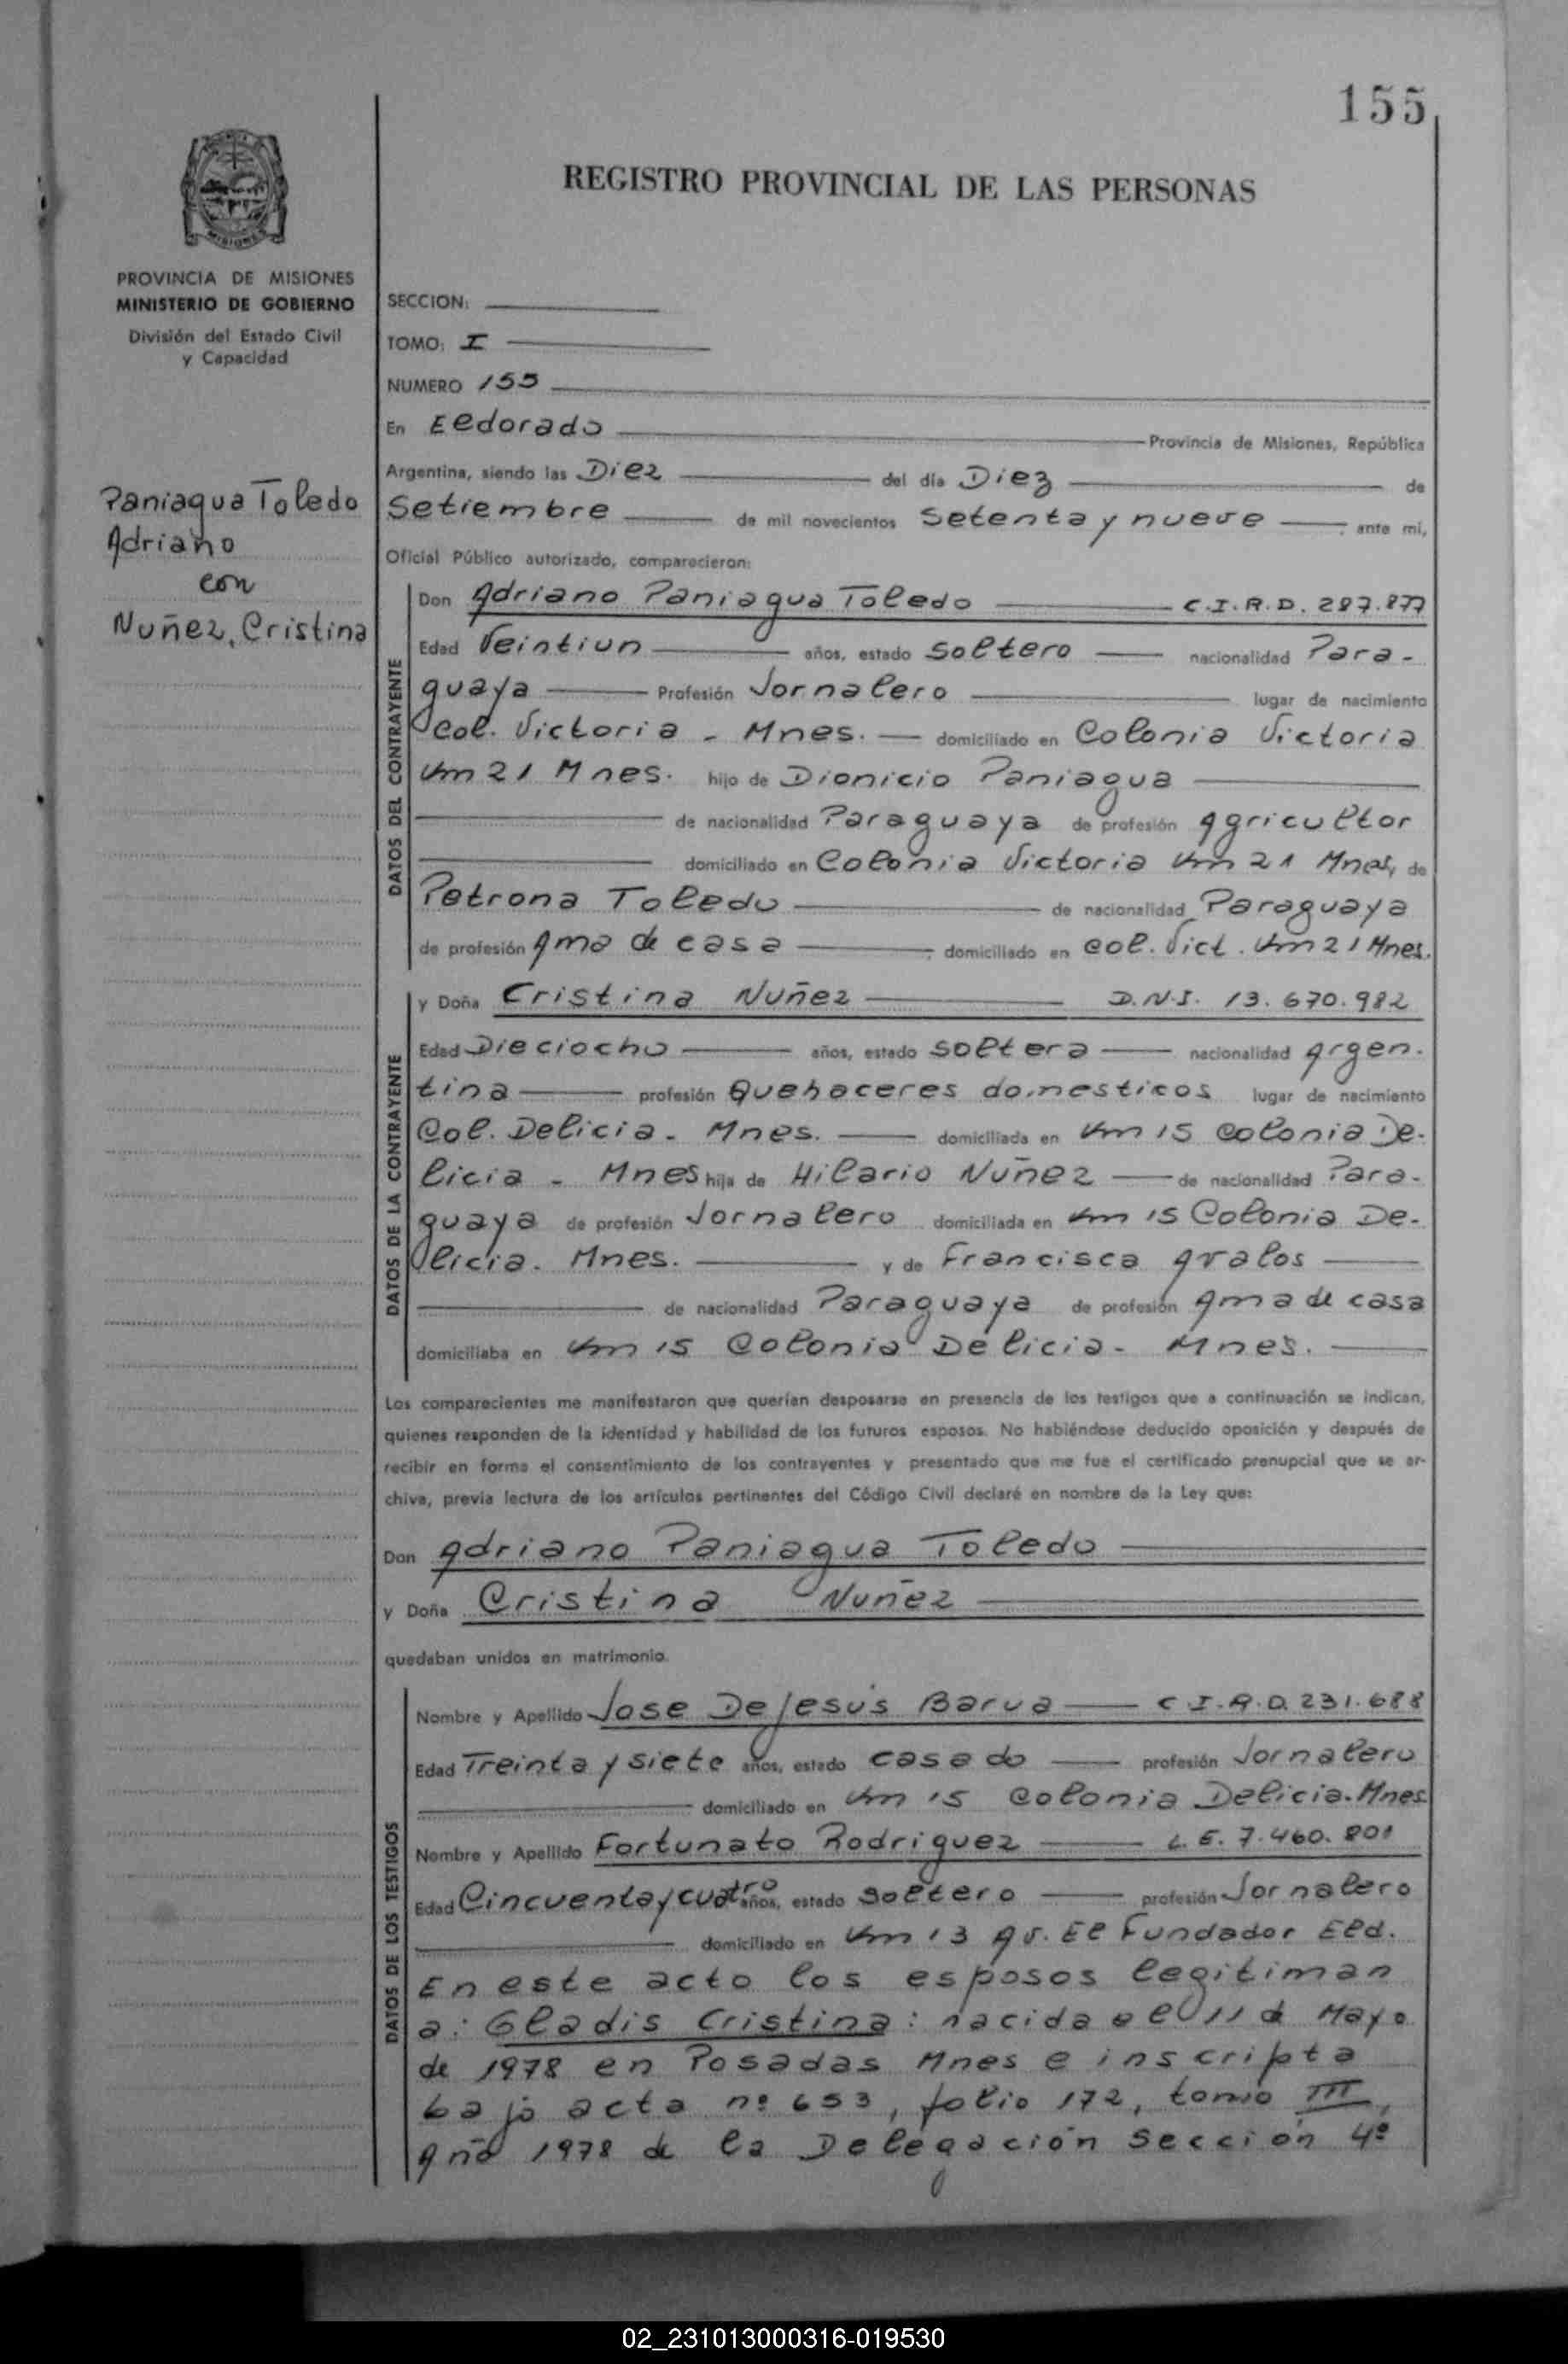 155
REGISTRO PROVINCIAL DE LAS PERSONAS
PROVINCIA DE MISIONES
MINISTERIO DE GOBIERNO
División del Estado Civil
y Capacidad
Paniagua Toledo
Adriano
con
Nuñez, Cristina
SECCION:
TOMO: I
NUMERO 155
En Eldorado Provincia de Misiones, República
Argentina, siendo las Diez del día Diez de
Setiembre de mil novecientos Setenta y nueve ; ante mí,
Oficial Público autorizado, comparecieron:
DATOS DEL CONTRAYENTE
Don Adriano Paniagua Toledo C.I.R.D. 287.877
Edad Veintiun años, estado Soltero nacionalidad Para-
guaya Profesión Jornalero lugar de nacimiento
Col. Victoria - Mnes. domiciliado en Colonia Victoria
Km 21 Mnes. hijo de Dionicio Paniagua
de nacionalidad Paraguaya de profesión Agricultor
domiciliado en Colonia Victoria Km 21 Mnes, de
Petrona Toledo de nacionalidad Paraguaya
de profesión Ama de casa ; domiciliado en Col. Vict. Km 21 Mnes.
DATOS DE LA CONTRAYENTE
y Doña Cristina Nuñez D.N.I. 13.670.982
Edad Dieciocho años, estado Soltera nacionalidad Argen-
tina profesión Quehaceres domesticos lugar de nacimiento
Col. Delicia - Mnes. domiciliada en Km 15 Colonia De-
licia - Mnes hija de Hilario Nuñez de nacionalidad Para-
guaya de profesión Jornalero domiciliada en Km 15 Colonia De-
licia. Mnes. y de Francisca Avalos
de nacionalidad Paraguaya de profesión Ama de casa
domiciliaba en Km 15 Colonia Delicia - Mnes.
Los comparecientes me manifestaron que querían desposarse en presencia de los testigos que a continuación se indican,
quienes responden de la identidad y habilidad de los futuros esposos. No habiéndose deducido oposición y después de
recibir en forma el consentimiento de los contrayentes y presentado que me fue el certificado prenupcial que se ar-
chiva, previa lectura de los artículos pertinentes del Código Civil declaré en nombre de la Ley que:
Don Adriano Paniagua Toledo
y Doña Cristina Nuñez
quedaban unidos en matrimonio.
DATOS DE LOS TESTIGOS
Nombre y Apellido Jose De Jesús Barua C.I.R.D. 231.688
Edad Treinta y siete años, estado casado profesión Jornalero
domiciliado en Km 15 Colonia Delicia. Mnes
Nombre y Apellido Fortunato Rodriguez L.E. 7.460.801
Edad Cincuenta y cuatro años, estado Soltero profesión Jornalero
domiciliado en Km 13 Av. El Fundador Eld.
En este acto los esposos legitiman
a: Gladis Cristina: nacida el 11 de Mayo
de 1978 en Posadas Mnes e inscripta
bajo acta nº 653, folio 172, tomo III,
Año 1978 de la Delegación Sección 4º
02_231013000316-019530